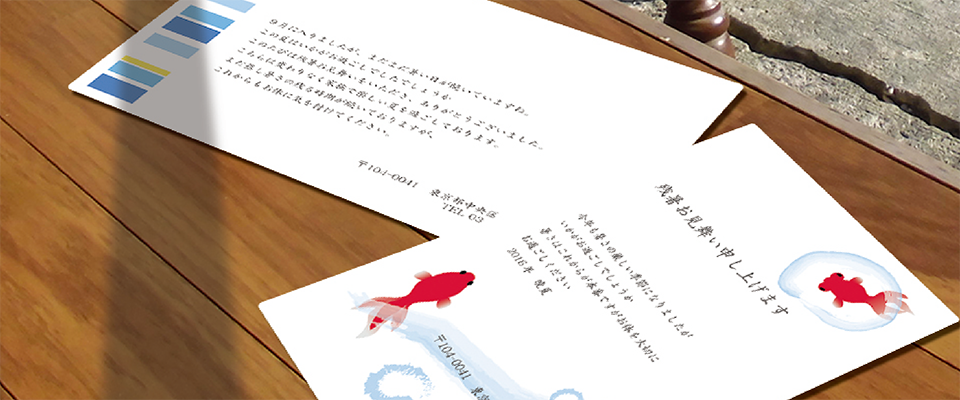 9月に入りましたが、まだまだ暑い日が続いていますね。
この夏はいかがお過ごしでしたでしょうか。
このたびは残暑お見舞いをいただき、ありがとうございました。
こちらは変わりなく家族で楽しい夏を過ごしております。
まだ蒸し暑さの残る時期が続いておりますが、
これからもお体に気を付けてください。
〒104-0041 東京都中央区
TEL 03
残暑お見舞い申し上げます
今年も暑さの厳しい季節になりましたが
いかがお過ごしでしょうか
暑さはこれからが本番ですがお体を大切に
お過ごしください
2016年 晩夏
〒104-0041 東京